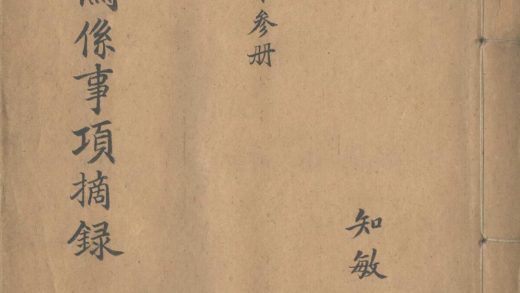 知敏
参册
係事項摘録